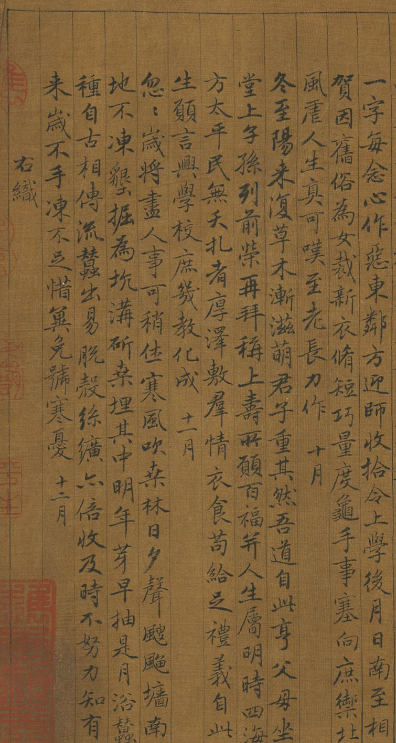 一字每念心作惡東鄰方迎師收拾令上學後月日南至相
賀因舊俗為女裁新衣脩短巧量度龜手事塞向庶禦北
風虐人生真可嘆至老長力作 十月
冬至陽來復草木漸滋萌君子重其然吾道自此亨父母坐
堂上子孫列前榮再拜稱上壽所願百福并人生屬明時四海
方太平民無夭札者厚澤敷羣情衣食苟給足禮義自此
生願言興學校庶幾教化成 十一月
忽〻歲將盡人事可稍休寒風吹桑林日夕聲颼飀墻南
地不凍墾掘為坑溝斫桑埋其中明年芽早抽是月浴蠶
種自古相傳流蠶出易脫殼絲纊亦倍收及時不努力知有
来歲不手凍不足惜冀免號寒憂 十二月
右織